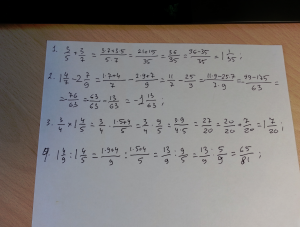 1. 3/5 + 3/7 = (3·7+3·5)/(5·7) = (21+15)/35 = 36/35 = (36-35)/35 = 1 1/35;
2. 1 4/7 - 2 7/9 = (1·7+4)/7 - (2·9+7)/9 = 11/7 - 25/9 = (11·9-25·7)/(7·9) = (99-175)/63 =
= 76/63 = 63/63 - 13/63 = -1 13/63;
3. 3/4 × 1 4/5 = 3/4 · (1·5+4)/5 = 3/4 · 9/5 = (3·9)/(4·5) = 27/20 = 20/20 + 7/20 = 1 7/20;
4. 1 4/9 : 1 4/5 = (1·9+4)/9 : (1·5+4)/5 = 13/9 : 9/5 = 13/9 · 5/9 = 65/81;